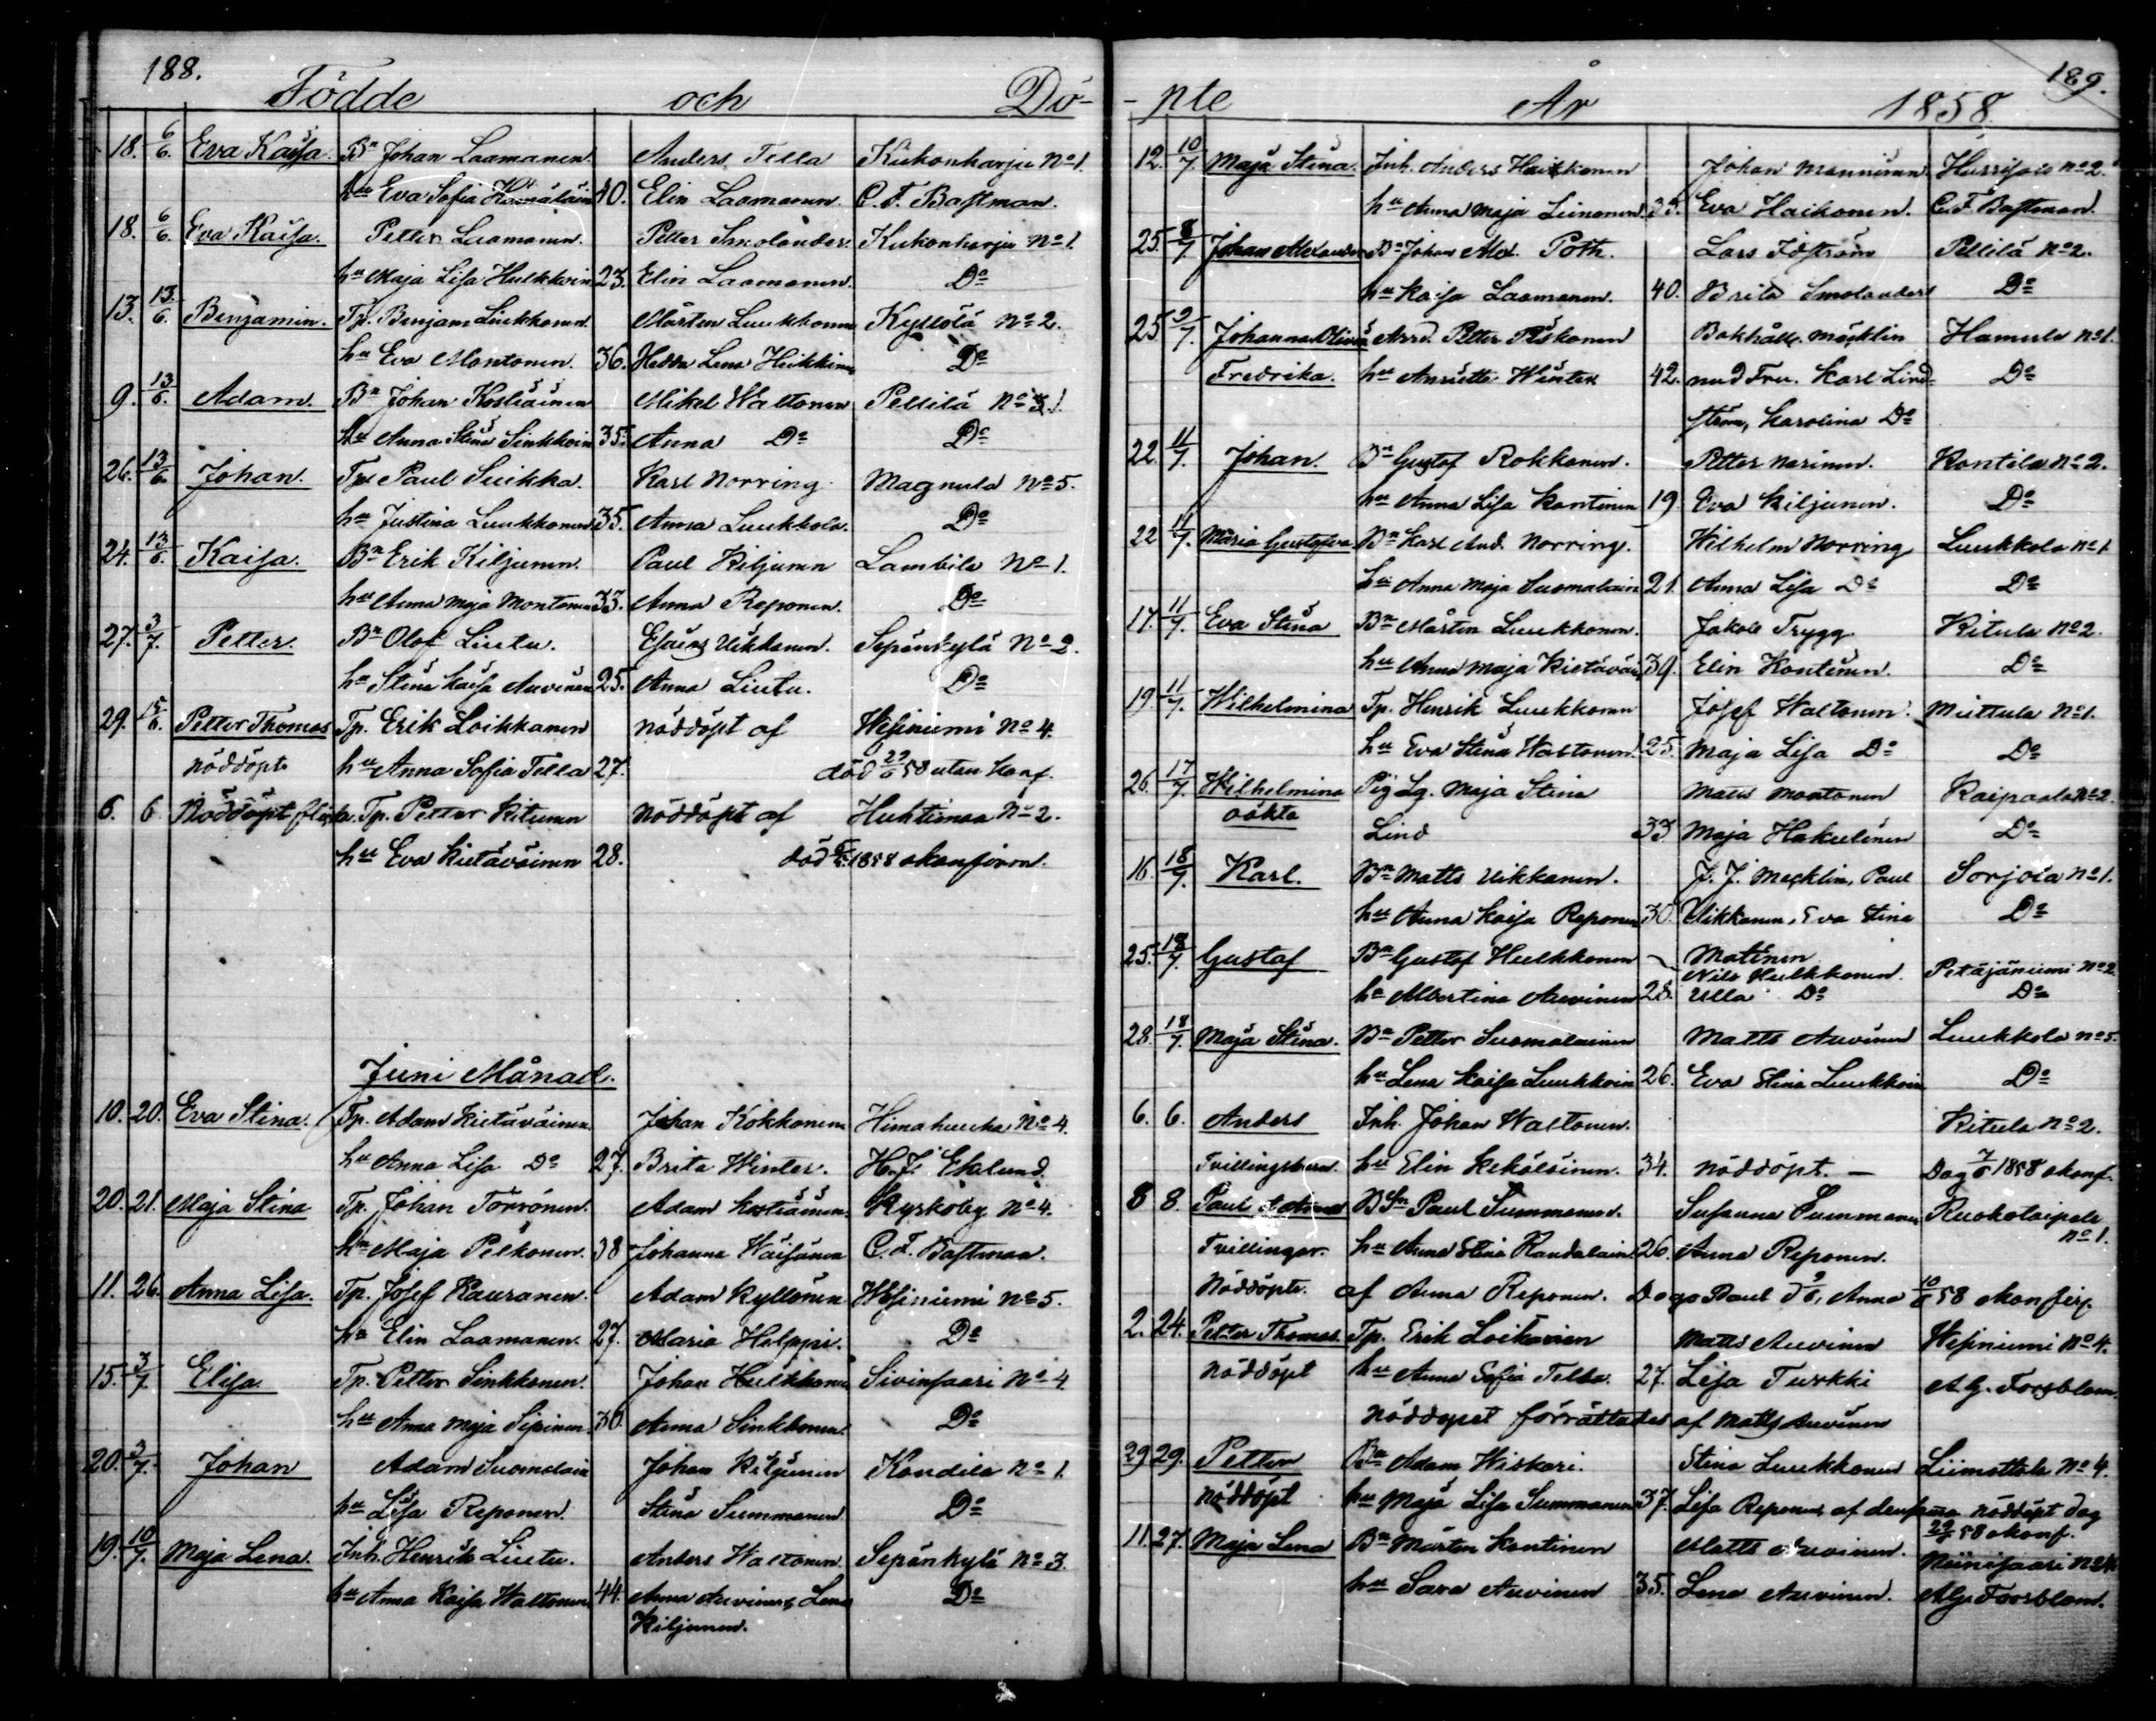 188.
Födde och Dö-
18. 6/6. Eva Kaisa. Bn Johan Laamanen. Anders Tella Kukonharju No 1.
hu Eva Sofia Hämäläin 40. Elin Laamanen. C. F. Bastman.
18. 6/6. Eva Kaisa. Petter Laamanen. Petter Smolander. Kukonharju No 1.
hu Maja Lisa Hulkkoin 23. Elin Laamanen. Do
13. 13/6. Benjamin. Tp. Benjam Luukkonen. Mårten Luukkonen Kyllölä No 2.
hu Eva Montonen. 36. Hedda Lena Heikkinen Do
9. 13/6. Adam. Bn Johan Kostiainen Mikel Waltonen Pellilä No 1.
hu Anna Stina Sinkkoin 35. Anna Do Do
26. 13/6. Johan. Tp. Paul Suikka. Karl Norring. Magnula No 5.
hu Justina Luukkonen 35. Anna Luukkola. Do
24. 13/6. Kaisa. Bn Erik Kiljunen. Paul Kiljunen Lambila No 1.
hu Anna Maja Montonen 33. Anna Reponen. Do
27. 3/7. Petter. Bn Olof Liutu. Esaias Uikkanen. Sepänkylä No 2.
hu Stina Kaisa Auvinen 25. Anna Liutu. Do
29. 15/6. Petter Thomas Tp. Erik Loikkanen nöddöpt af Wesiniemi No 4.
nöddöpt. hu Anna Sofia Tella 27. död 29/6 58 utan konf.
6. 6 Nöddöpt flicka. Tp. Petter Kitunen nöddöpt af Huhtimaa No 2.
hu Eva Kietäväinen 28. död 1858 okonfirm.
Juni Månad.
10. 20. Eva Stina. Tp. Adam Kietäväinen. Johan Kokkonen Himahuuha No 4.
hu Anna Lisa Do 27. Brita Winter. H. J. Eklund.
20. 21. Maja Stina Tp. Johan Törrönen. Adam Kostiainen. Kyrkoby No 4.
hu Maja Pelkonen. 38 Johanna Waisänen C. F. Bastman.
11. 26. Anna Lisa. Tp. Josef Kauranen. Adam Kyllönen Wesiniemi No 5.
hu Elin Laamanen. 27. Maria Helppi. Do
15. 3/7. Elisa. Tp. Petter Sinkkonen. Johan Hulkkonen Sivinsaari No 4
hu Anna Maja Sipinen. 30 Anna Sinkkonen. Do
20. 3/7. Johan Adam Suomalain Johan Kiljunen Kondila No 1.
hu Lisa Reponen. Stina Summanen Do
19. 10/7. Maja Lena. Inh. Henrik Liutu. Anders Waltonen. Sepänkylä No 3.
hu Anna Kaisa Waltonen 44. Anna Auvinen, Lena Do
Kiljunen.
189.
-pte År 1858
12. 10/7. Maja Stina. Inh. Anders Haikkonen Johan Manninen. No 2.
hu Anna Maja Liinonen. 35. Eva Haikonen. C. F. Bastman.
25. 8/7. Johan Alexander Bn Johan Alex. Poth. Lars Idström Pellilä No 2.
hu Kaisa Laamanen. 40. Brita Smolander Do
25 9/7. Johanna Olivia Arrd. Petter Pöskonen Bokhåll. Mäcklin Hamula No 1.
Fredrika. hu Ansiette Winter 42. med Fru. Karl Lind- Do
ström, Karolina Do
22. 11/7. Johan. Bn Gustof Rokkanen. Petter Narinen. Kontila No 2.
hu Anna Lisa Kontinen 19. Eva Kiljunen. Do
22 11/7. Maria Gustafva Bn Karl And. Norring. Wilhelm Norring Luukkola No 1
hu Anna Maja Suomalain 21. Anna Lisa Do Do
17. 11/7. Eva Stina Bn Mårten Luukkonen. Jakob Trygg. Kitula No 2.
hu Anna Maja Kietäväi 39. Elin Kontinen. Do
19. 11/7. Wilhelmina Tp. Henrik Luukkonen Josef Waltonen. Miettula No 1.
hu Eva Stina Waltonen. 25. Maja Lisa Do Do
26. 17/7. Wilhelmina Pig Lg. Maja Stina Matts Montonen Kaipaala No 2
oäkta Lind 33 Maja Hakulinen Do
16. 18/7. Karl. Bn Matts Uikkanen. J. J. Mecklin, Paul Sorjola No 1.
hu Anna Kaisa Reponen 30. Uikkanen, Eva Stina Do
25. 18/7. Gustaf Bn Gustaf Hulkkonen Matinen
Nils Hulkkonen. Petäjäniemi No 2
hu Albertina Auvinen 28. Ulla Do Do
28. 18/7. Maja Stina. Bn Petter Suomalainen Matts Auvinen Luukkola No 5.
hu Lena Kaisa Luukkoin 26. Eva Stina Luukkoin Do
6. 6. Anders Inh. Johan Waltonen. Kitula No 2.
Tvillingsbarn. hu Elin Kekäläinen. 34. nöddöpt. — Dog 7/6 1858 okonf.
8 8. Paul o Anna Bn Paul Summanen. Susanna Summanen Ruokolaipale
No 1.
Tvillingar. hu Anna Stina Kandalain 26. Anna Reponen.
Nöddöpte. af Anna Reponen. Dogo Paul d 9/6, Anna 10/6 58 okonfir.
2. 24. Petter Thomas. Tp. Erik Loikanen Matts Auvinen Wesiniemi No 4.
nöddöpt hu Anna Sofia Tella. 27. Lisa Turkki A. G. Forsblom.
Nöddopet förrättades af Matts Auvinen
29 29. Petter Bn Adam Wiskari. Stina Luukkonen Liimattala No 4.
nöddöpt hu Maja Lisa Summanen 37. Lisa Reponen af densamma nöddöpt dog
29/6 58 okonf.
11. 27. Maja Lena Bn Mårten Kontinen Matts Auvinen. Niinisaari No 4.
hu Sara Auvinen 35. Lena Auvinen. A. G. Forsblom.